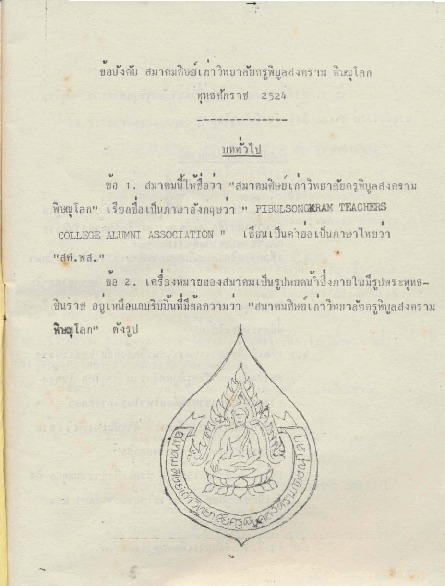 ข้อบังคับ สมาคมศิษย์เก่าวิทยาลัยครูพิบูลสงคราม พิษณุโลก
พุทธศักราช 2524
--------------
บททั่วไป
ข้อ 1. สมาคมนี้ให้ชื่อว่า "สมาคมศิษย์เก่าวิทยาลัยครูพิบูลสงคราม
พิษณุโลก" เรียกชื่อเป็นภาษาอังกฤษว่า " PIBULSONGKRAM TEACHERS
COLLEGE ALUMNI ASSOCIATION " เขียนเป็นคำย่อเป็นภาษาไทยว่า
"สศ.พส."
ข้อ 2. เครื่องหมายของสมาคมเป็นรูปหยดน้ำซึ่งภายในมีรูปพระพุทธ-
ชินราช อยู่เหนือแถบริบบิ้นที่มีข้อความว่า "สมาคมศิษย์เก่าวิทยาลัยครูพิบูลสงคราม
พิษณุโลก" ดังรูป
สมาคมศิษย์เก่าวิทยาลัยครูพิบูลสงครามพิษณุโลก